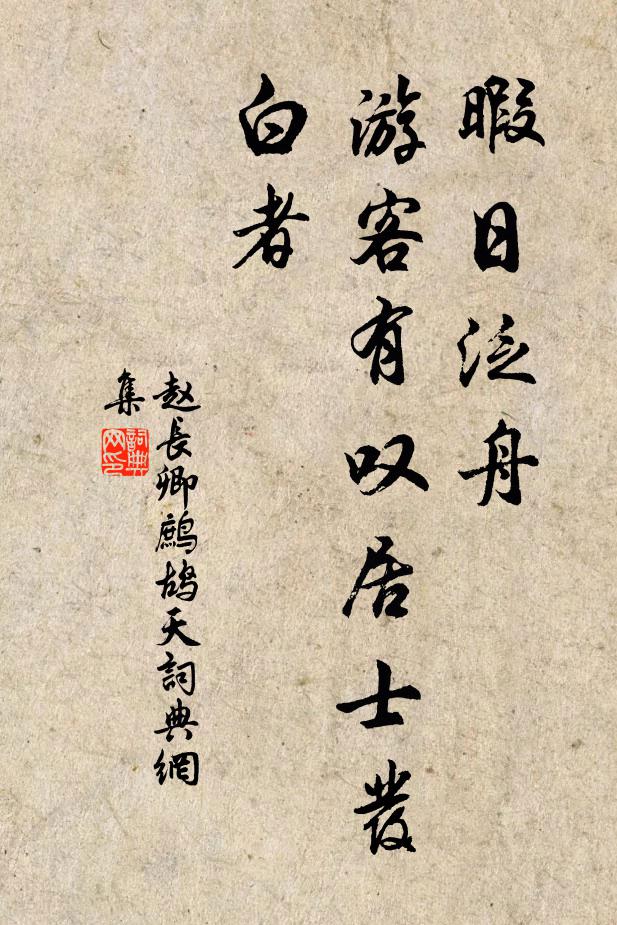 暇日泛舟
游客有叹居士發
白者
赵長卿鷓鴣天詞典網
集
詞典
网印